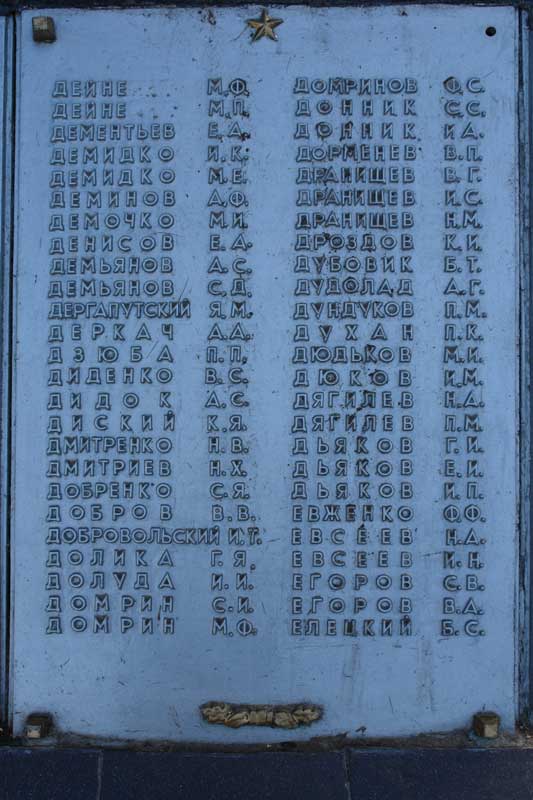 ДЕЙНЕ М.Ф.
ДЕЙНЕ М.П.
ДЕМЕНТЬЕВ Е.А.
ДЕМИДКО И.К.
ДЕМИДКО М.Е.
ДЕМИНОВ А.Ф.
ДЕМОЧКО М.И.
ДЕНИСОВ Е.А.
ДЕМЬЯНОВ А.С.
ДЕМЬЯНОВ С.Д.
ДЕРГАПУТСКИЙ Я.М.
ДЕРКАЧ А.А.
ДЗЮБА П.П.
ДИДЕНКО В.С.
ДИДОК А.С.
ДИСКИЙ К.Я.
ДМИТРЕНКО Н.В.
ДМИТРИЕВ Н.Х.
ДОБРЕНКО С.Я.
ДОБРОВ В.В.
ДОБРОВОЛЬСКИЙ И.Т.
ДОЛИКА Г.Я.
ДОЛУДА И.И.
ДОМРИН С.И.
ДОМРИН М.Ф.
ДОМРИНОВ Ф.С.
ДОННИК С.С.
ДОННИК И.А.
ДОРМЕНЕВ В.П.
ДРАНИЩЕВ В.Г.
ДРАНИЩЕВ И.С.
ДРАНИЩЕВ Н.М.
ДРОЗДОВ К.И.
ДУБОВИК Б.Т.
ДУДОЛАД А.Г.
ДУНДУКОВ П.М.
ДУХАН П.К.
ДЮДЬКОВ М.И.
ДЮКОВ И.М.
ДЯГИЛЕВ Н.А.
ДЯГИЛЕВ П.М.
ДЬЯКОВ Г.И.
ДЬЯКОВ Е.И.
ДЬЯКОВ И.П.
ЕВЖЕНКО Ф.Ф.
ЕВСЕЕВ Н.А.
ЕВСЕЕВ И.Н.
ЕГОРОВ С.В.
ЕГОРОВ В.А.
ЕЛЕЦКИЙ Б.С.